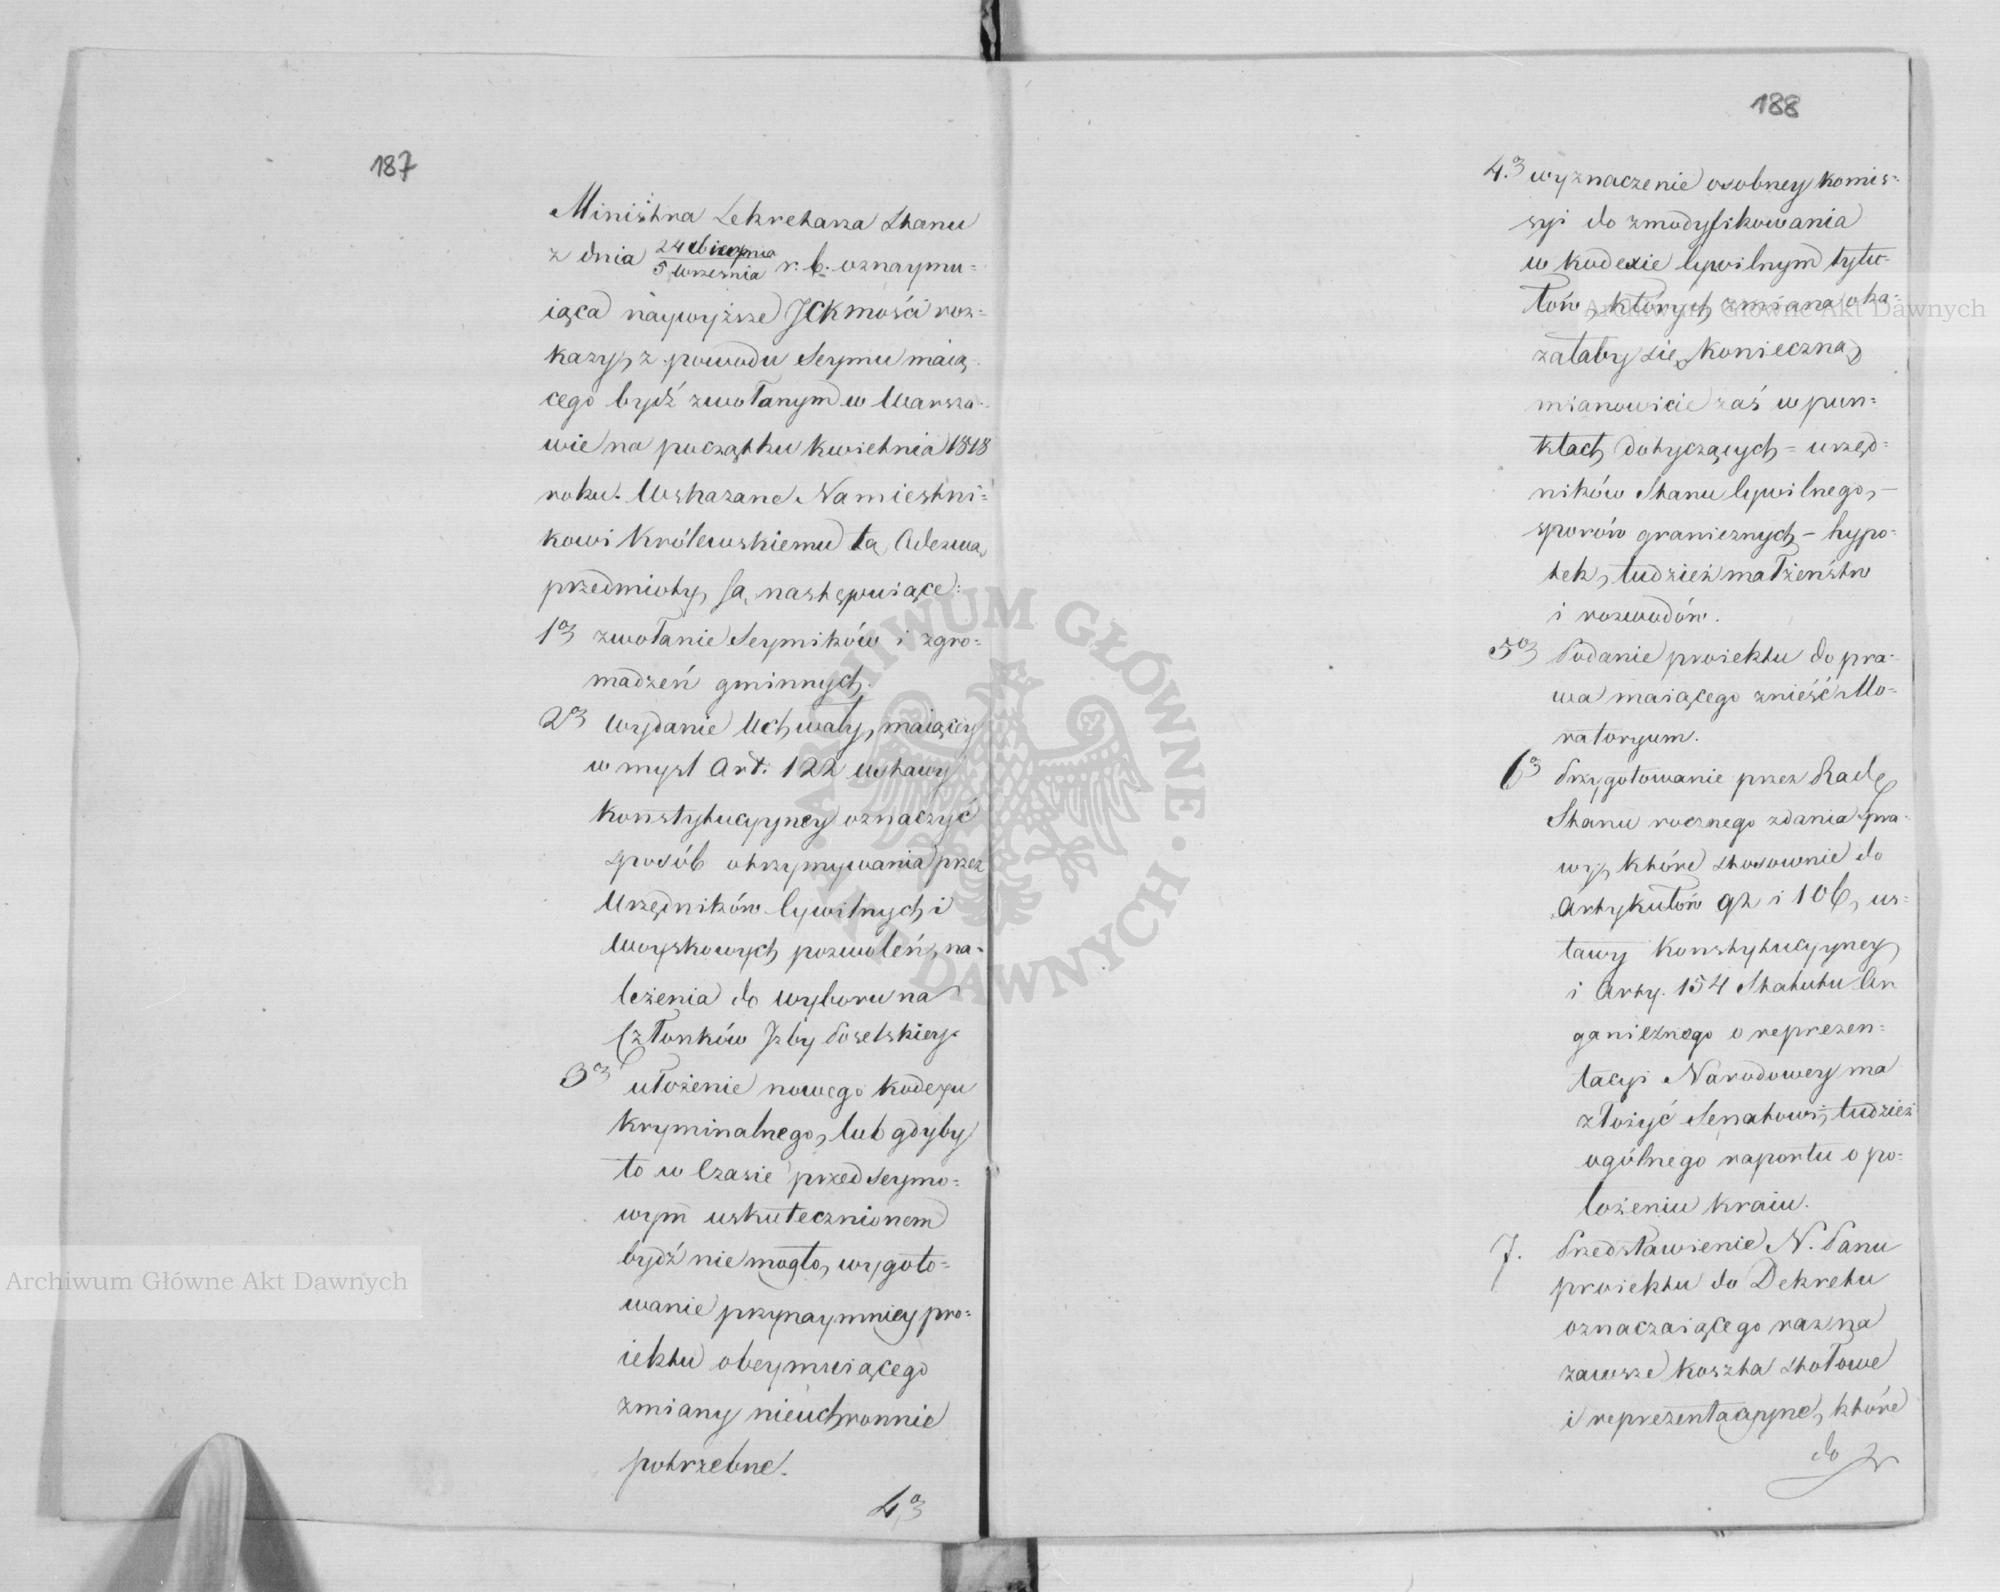 187
Ministra Sekretarza Stanu
z dnia 24 Sierpnia / 5 Września r. b. oznaymu=
iąca naywyższe JCKmości roz=
kazy, z powodu Seymu maią=
cego bydź zwołanym w Warsza=
wie na początku kwietnia 1818
roku. Wskazane Namiestni=
kowi Królewskiemu tą Odezwą
przedmioty, są następuiące:
1o zwołanie Seymików i zgro=
madzeń gminnych.
2o wydanie Uchwały, maiącey
w myśl Art. 122 ustawy
konstytucyyney oznaczyć
sposób otrzymywania przez
Urzędników Cywilnych i
Woyskowych pozwoleń, na=
leżenia do wyboru na
Członków Izby Poselskiey.
3o ułożenie nowego kodexu
kryminalnego, lub gdyby
to w Czasie przed Seymo=
wym uskutecznionem
bydź nie mogło, wygoto=
wanie przynaymniey pro=
iektu obeymuiącego
zmiany nieuchronnie
potrzebne.
4o
188
4o wyznaczenie osobney komis=
syi do zmodyfikowania
w kodexie Cywilnym tytu=
łów, których zmiana oka=
załaby się konieczną,
mianowicie zaś w pun=
ktach dotyczących = urzęd=
ników Stanu Cywilnego, –
sporów granicznych – hypo=
tek, tudzież małżeństw
i rozwodów.
5o Podanie proiektu do pra=
wa maiącego znieść Mo=
ratoryum.
6o Przygotowanie przez Radę
Stanu rocznego zdania spra=
wy, które stosownie do
Artykułów 92 i 106, us=
tawy Konstytucyyney,
i Arty. 154 Statutu Or
ganicznego o reprezen=
tacyi Narodowey ma
złożyć Senatowi, tudzież
ogólnego raportu o po=
łożeniu kraiu.
7. Przedstawienie N. Panu
proiektu do Dekretu
oznaczaiącego raz na
zawsze koszta stołowe
i reprezentacyyne, które
do
Archiwum Główne Akt Dawnych
Archiwum Główne Akt Dawnych
ARCHIWUM GŁÓWNE · AKT DAWNYCH ·